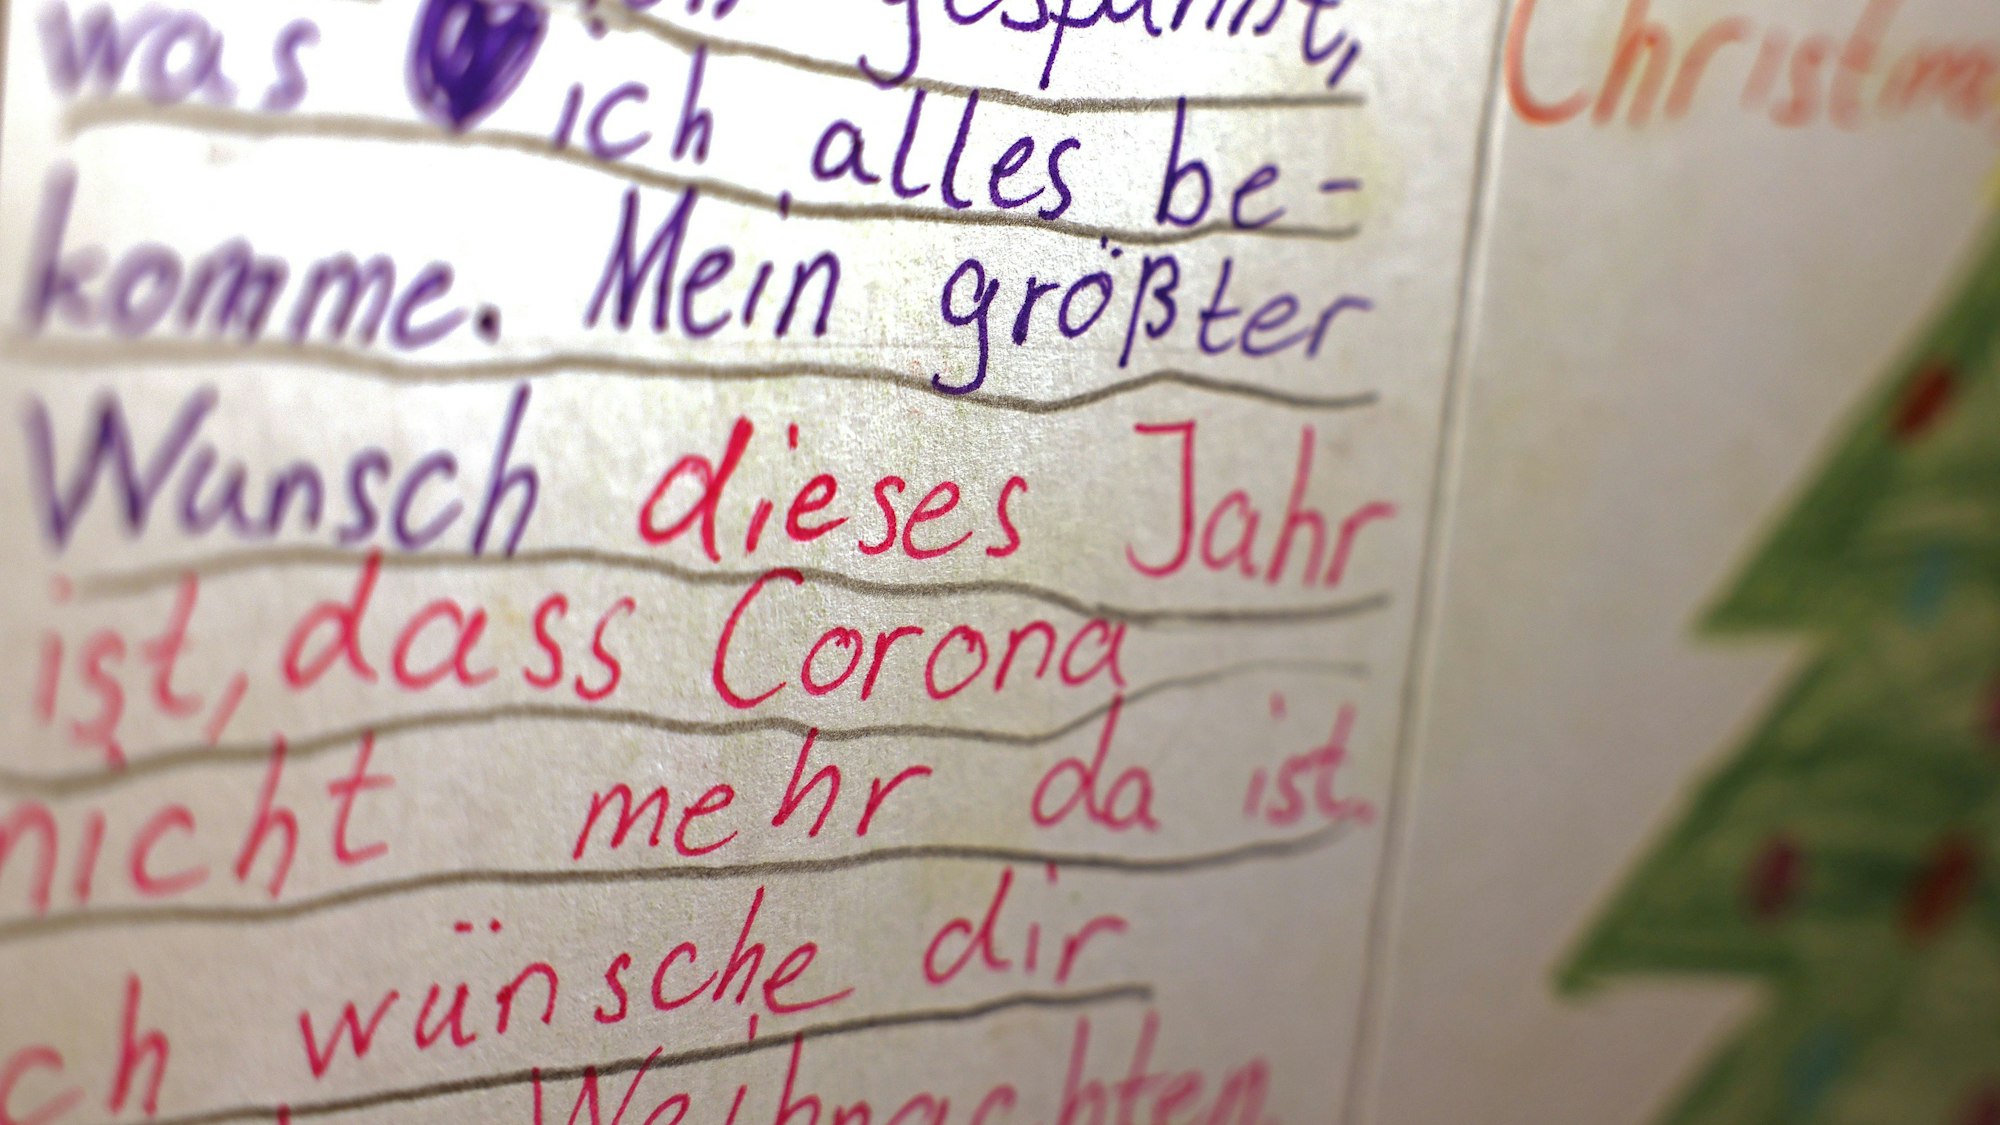 gespannt,
was ich alles be-
komme. Mein größter
Wunsch dieses Jahr
ist, dass Corona
nicht mehr da ist.
ch wünsche dir
Weihnachten
Christma